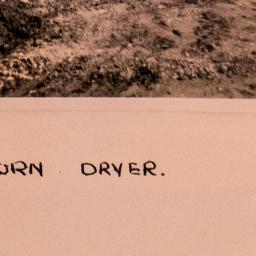 ORN DRYER.